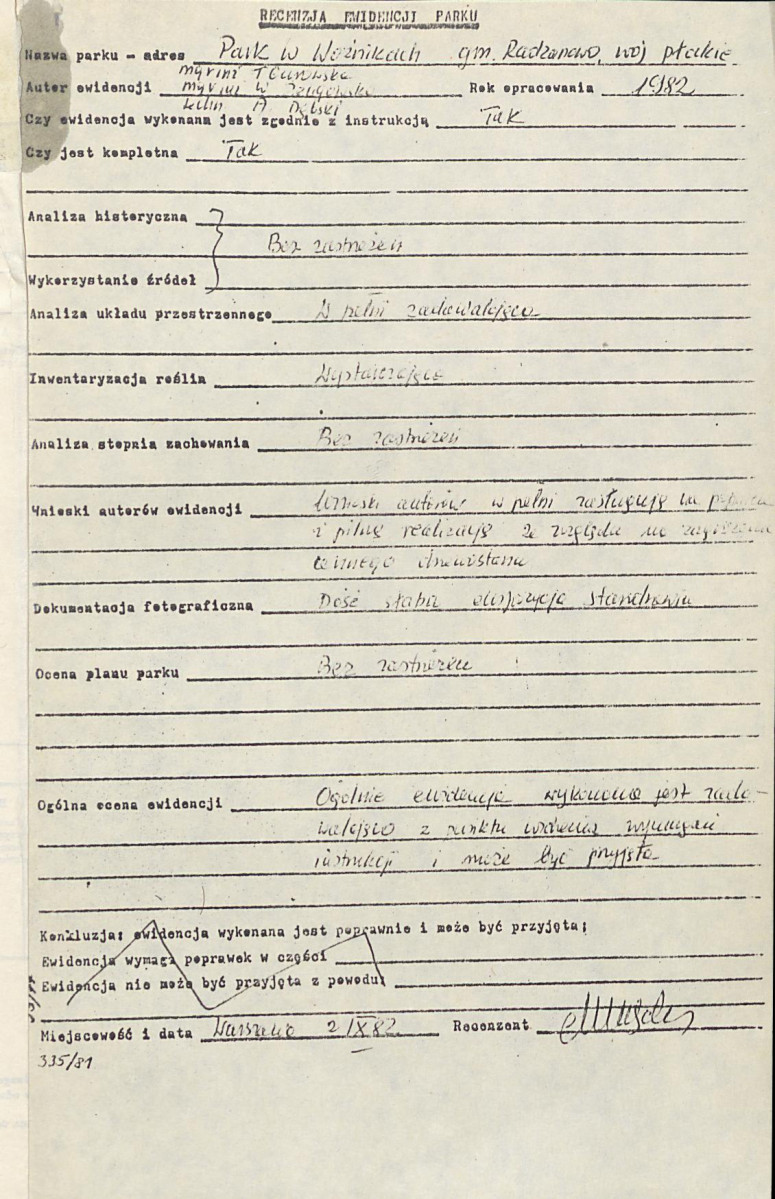 RECENZJA EWIDENCJI PARKU
Nazwa parku - adres Park w Woźnikach gm. Radzanowo, woj płockie
mgr inż T
Autor ewidencji mgr inż W Rok opracowania 1982
A Dębski
Czy ewidencja wykonana jest zgodnie z instrukcją Tak
Czy jest kompletna Tak
Analiza historyczna
Bez zastrzeżeń
Wykorzystanie źródeł
Analiza układu przestrzennego W pełni zadawalająco
Inwentaryzacja roślin Wystarczająco
Analiza stopnia zachowania Bez zastrzeżeń
Wnioski autorów ewidencji Wnioski autorów w pełni zasługują na
i pilną realizację ze względu na
cennego drzewostanu
Dokumentacja fotograficzna Dość słaba ekspozycja
Ocena planu parku Bez zastrzeżeń
Ogólna ocena ewidencji Ogólnie ewidencja wykonana jest zado-
walająco z punktu widzenia wymagań
instrukcji i może być przyjęta
Konkluzja: ewidencja wykonana jest poprawnie i może być przyjęta;
Ewidencja wymaga poprawek w części
Ewidencja nie może być przyjęta z powodu:
Miejscowość i data Warszawa 2 IX 82 Recenzent
335/81